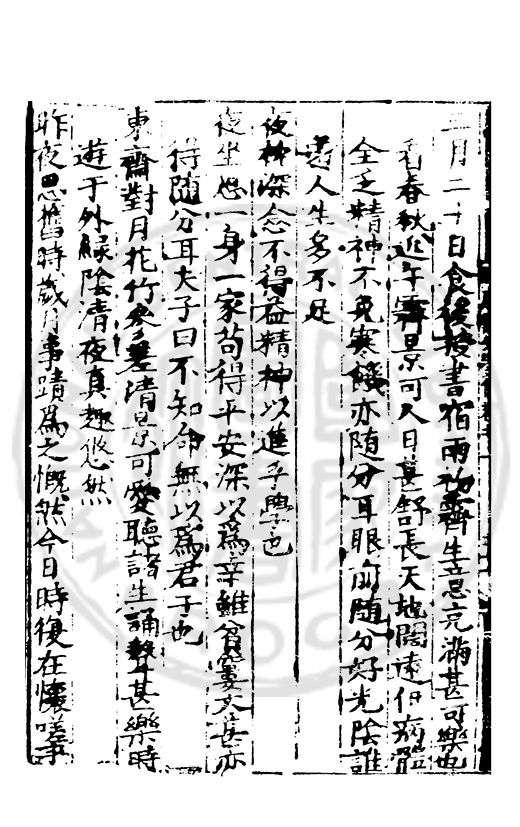 二月二十日食後授書宿雨初霽生意充滿甚可樂也
看春秋近午霽景可人日甚舒長天地闊遠但病體
全乏精神不免寒餓亦隨分耳眼前隨分好光陰誰
道人生多不足
夜枕深念不得益精神以進乎學也
夜坐思一身一家苟得平安深以為幸雖貧窶大甚亦
得隨分耳夫子曰不知命無以為君子也
東齋對月花竹參差清景可愛聽諸生誦聲甚樂時
遊于外綠陰清夜真趣悠然
昨夜思舊時歲月事蹟為之慨然今日時復在懷嗟事